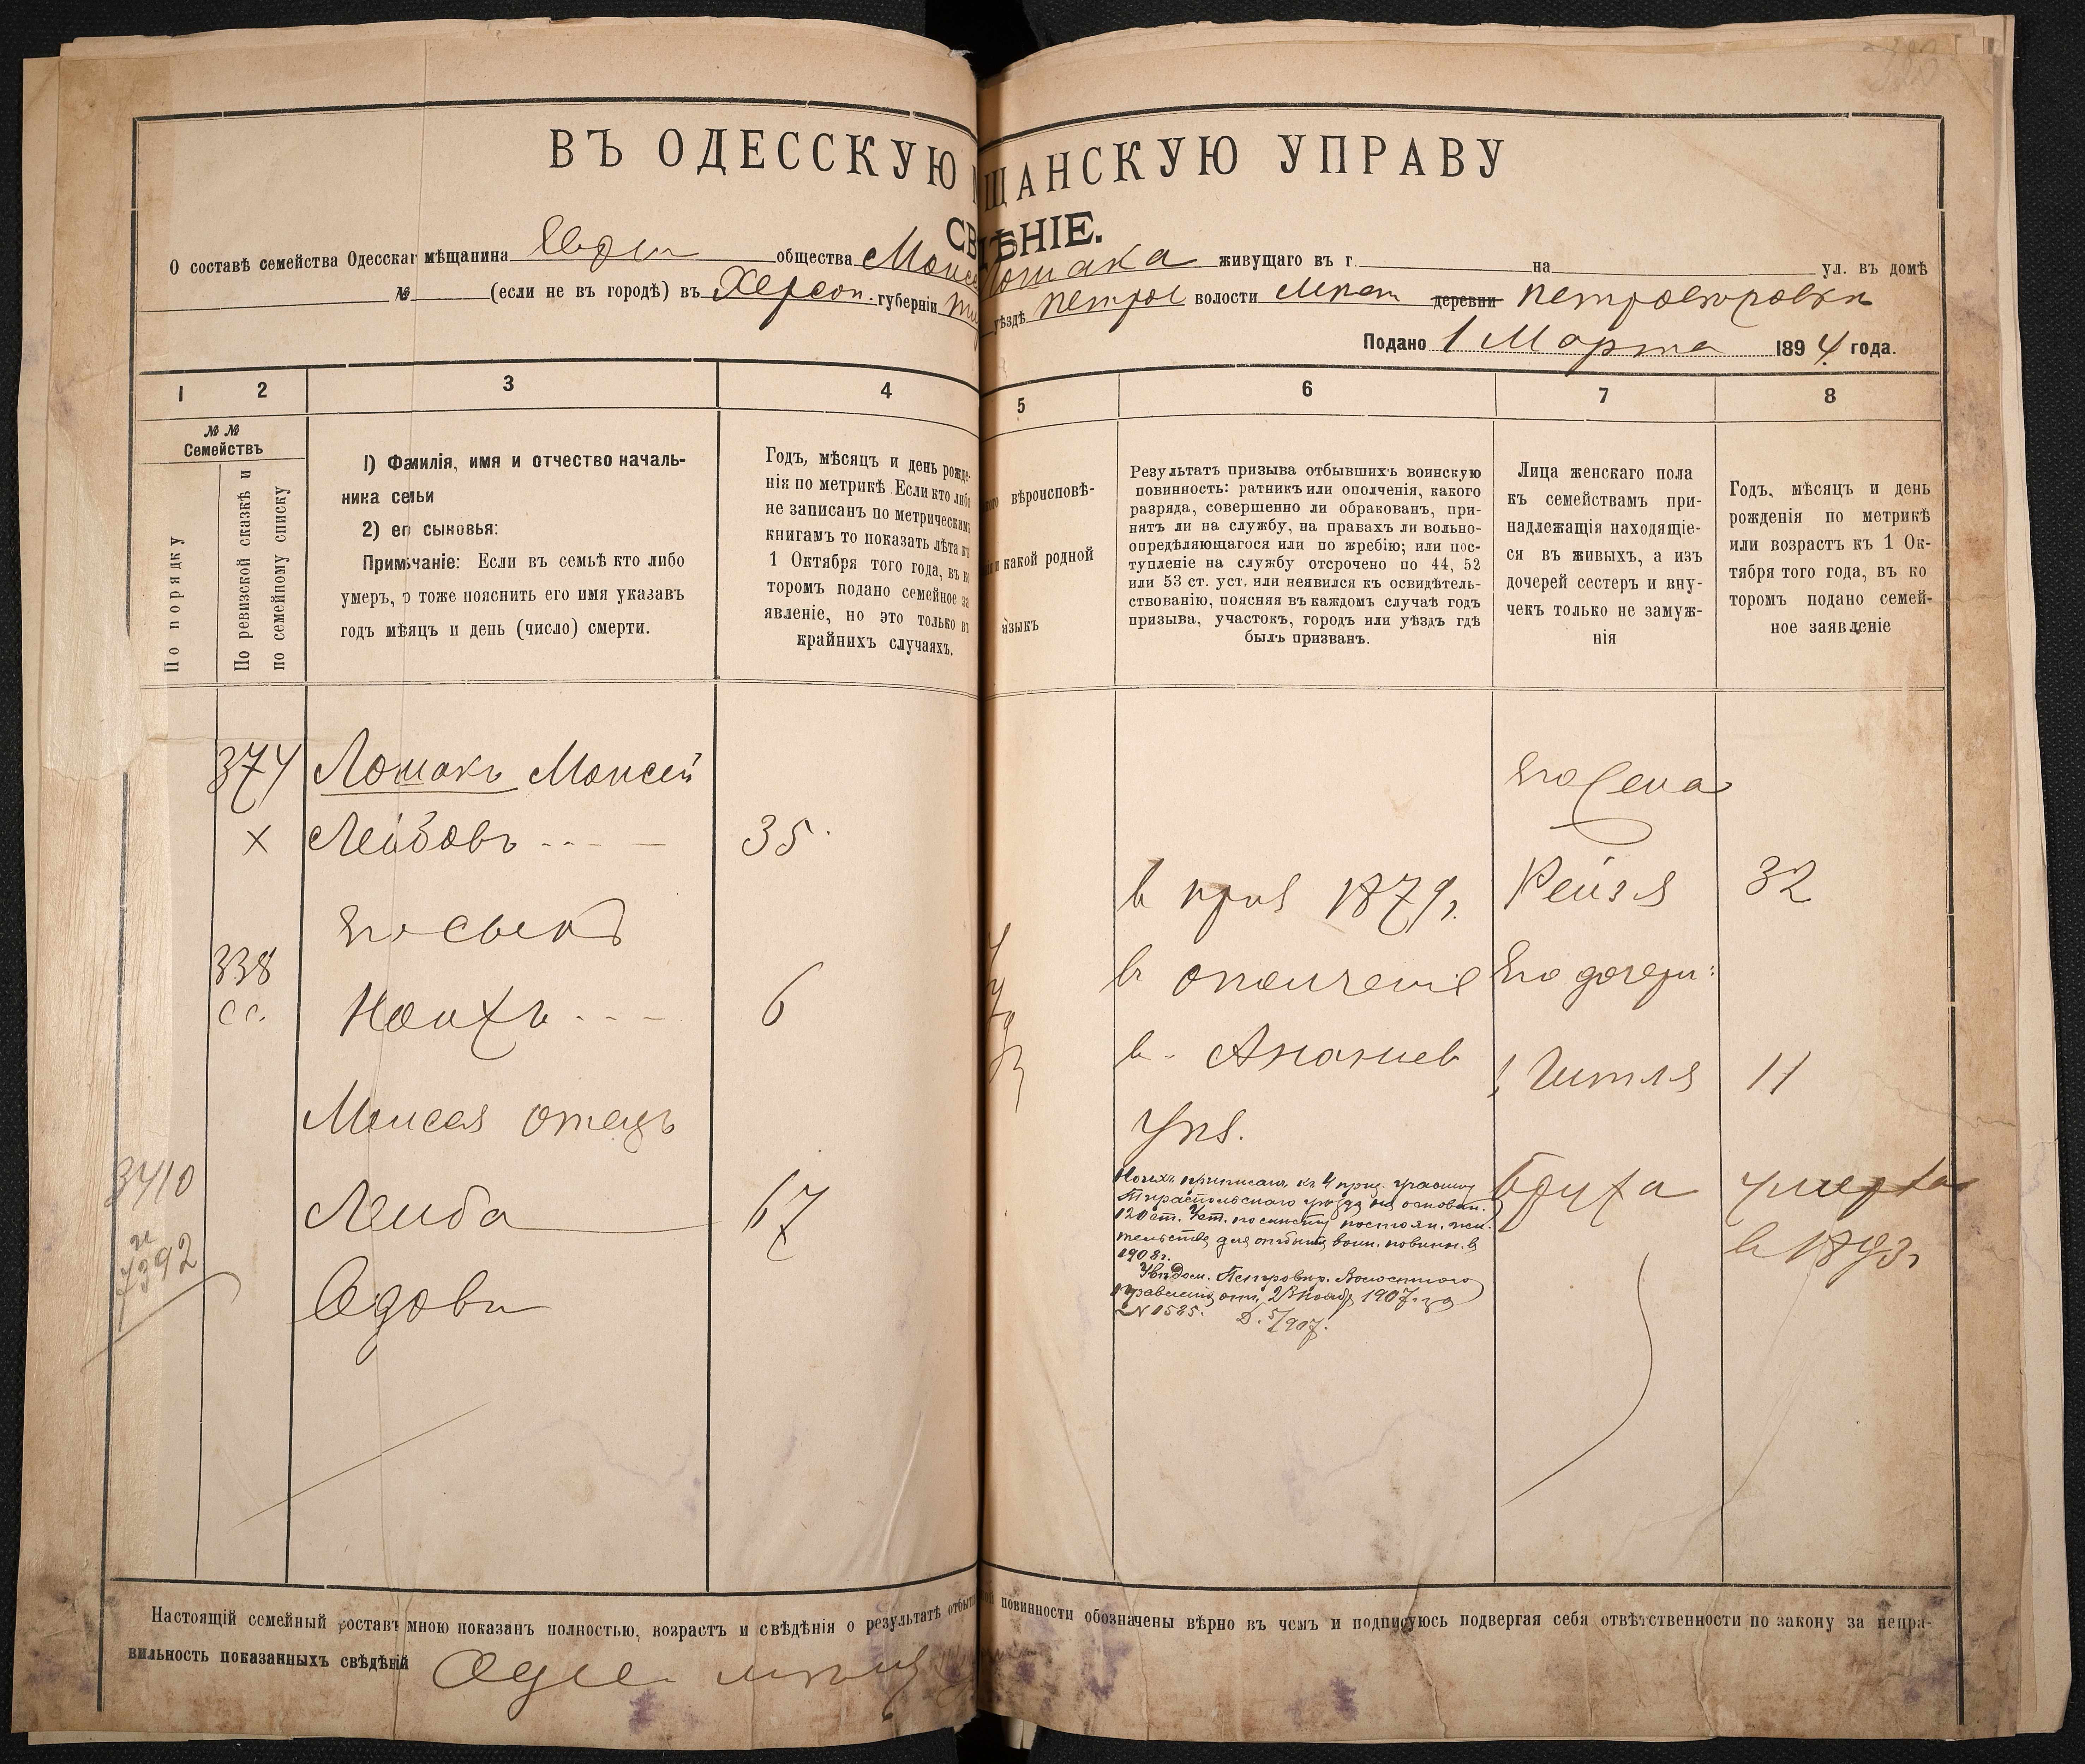 ВЪ ОДЕССКУЮ ЩАНСКУЮ УПРАВУ
СВ ДѢНІЕ.
О составѣ семейства Одесскаг мѣщанина общества Моисе Лошака живущаго въ г. на ул. въ домѣ
№ (если не въ городѣ) въ Херсон. губерніи уѣздѣ Петров волости деревни Петровѣровки
Подано 1 Марта 1894 года.
1 2 3 4 5 6 7 8
№ №
Семействъ
По порядку
По ревизской сказкѣ и
по семейному списку
1) Фамилія, имя и отчество началь-
ника семьи
2) его сыновья:
Примѣчаніе: Если въ семьѣ кто либо
умеръ, о тоже пояснить его имя указавъ
годъ мѣяцъ и день (число) смерти.
Годъ, мѣсяцъ и день рожде-
нія по метрикѣ. Если кто либо
не записанъ по метрическимъ
книгамъ то показать лѣта къ
1 Октября того года, въ ко
торомъ подано семейное за
явленіе, но это только въ
крайнихъ случаяхъ.
вѣроисповѣ-
какой родной
языкъ
Результатъ призыва отбывшихъ воинскую
повинность: ратникъ или ополченія, какого
разряда, совершенно ли обракованъ, при-
нятъ ли на службу, на правахъ ли вольно-
опредѣляющагося или по жребію; или пос-
тупленіе на службу отсрочено по 44, 52
или 53 ст. уст. или неявился къ освидѣтель-
ствованію, поясняя въ каждомъ случаѣ годъ
призыва, участокъ, городъ или уѣздъ гдѣ
былъ призванъ.
Лица женскаго пола
къ семействамъ при-
надлежащія находящіе-
ся въ живыхъ, а изъ
дочерей сестеръ и вну-
чекъ только не замуж-
нія
Годъ, мѣсяцъ и день
рожденія по метрикѣ
или возрастъ къ 1 Ок-
тября того года, въ ко
торомъ подано семей-
ное заявленіе
374 Лошакъ Моисей
х Лейбовъ 35
Его сынъ
338 Ноихъ 6
сс.
Моисея отецъ
3410 Лейба 67
и
7392
в приз 1879г.
в ополчение
в Ананиев
Его жена
Рейзя 32
Его дочери:
Гитля 11
Бруха умерла
в 1893г
Ноихъ приписанъ къ 4 приз. участку
Тираспольскаго уѣзда на основан.
120 ст. Уст. по мѣсту постоян. жи-
тельства для отбытія воин. повинн. в
1908г.
Увѣдом. Петровѣр. Волостного
Правленія отъ 23 Ноября 1907г. за
№ 1585.
Настоящій семейный составъ мною показанъ полностью, возрастъ и свѣдѣнія о результатѣ отбыт повинности обозначены вѣрно въ чемъ и подписуюсь подвергая себя отвѣтственности по закону за непра-
вильность показанныхъ свѣдѣній